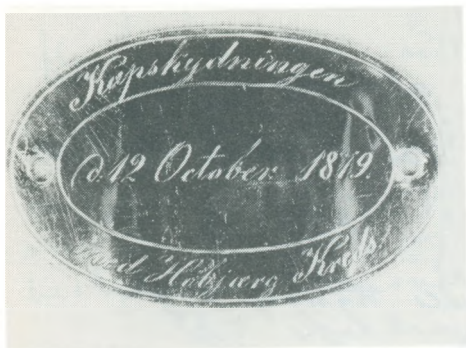 Kapskydningen
d. 12 October 1879.
Høbjærg Kreds